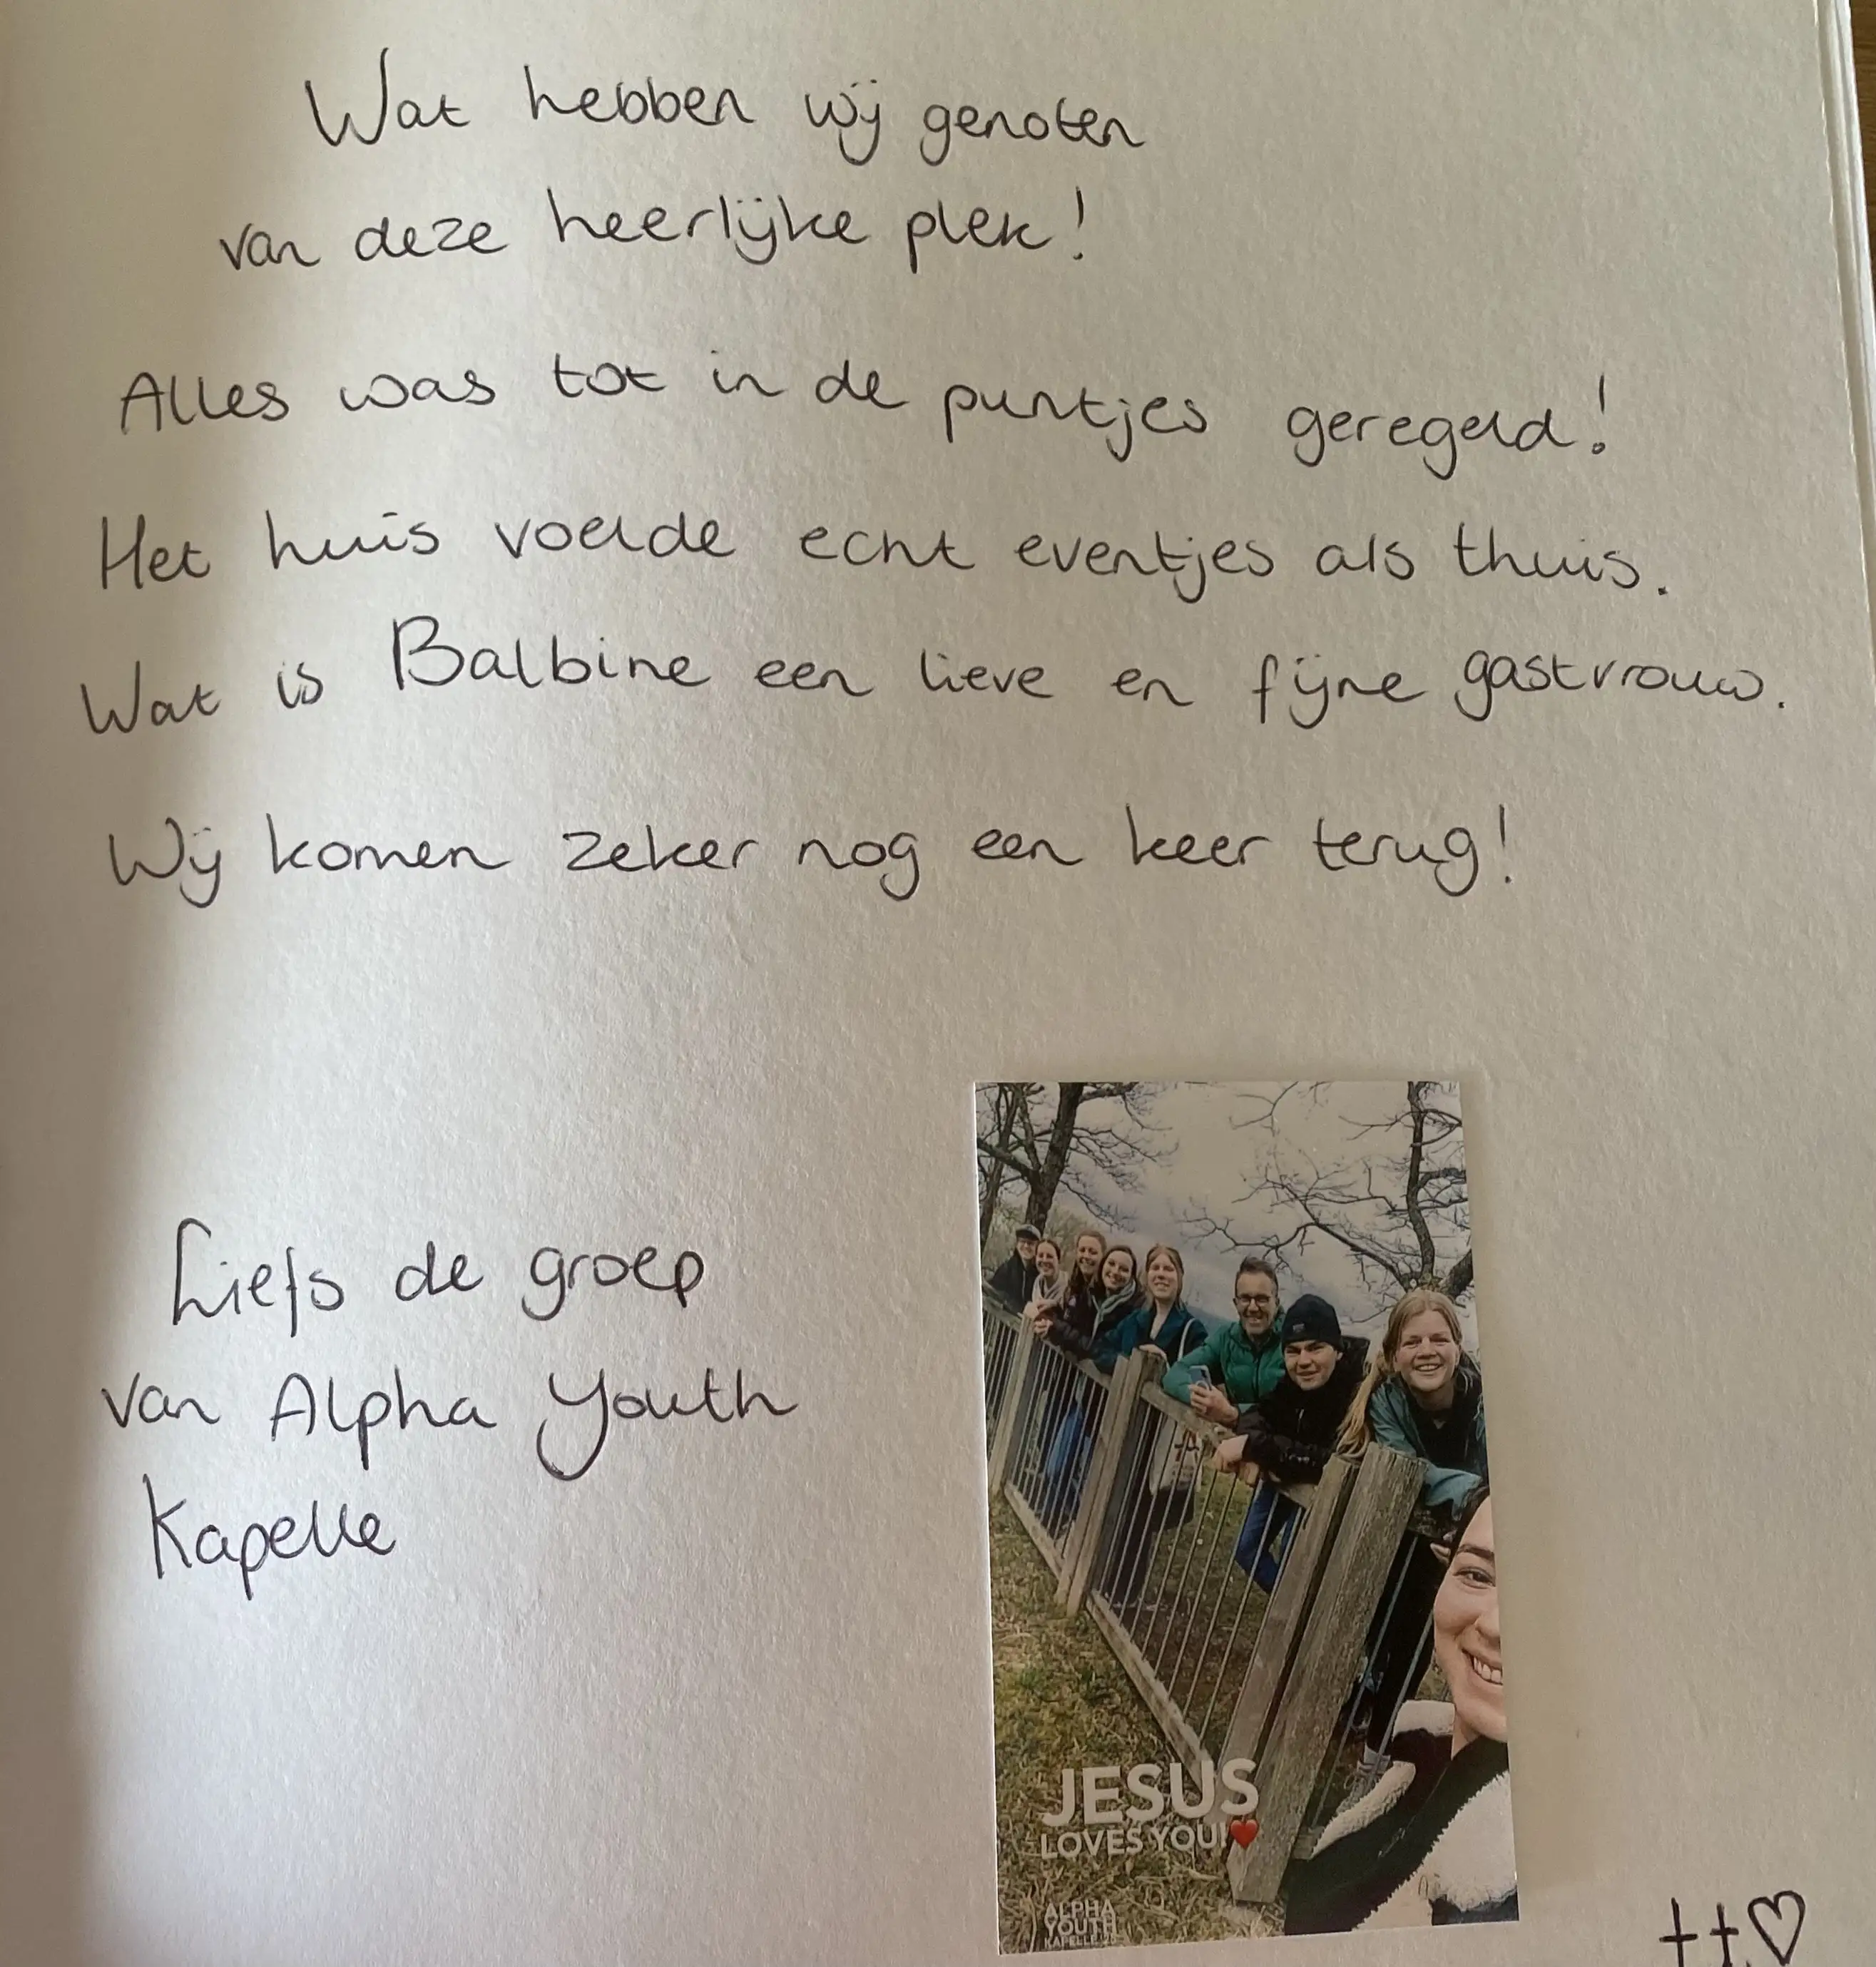 Wat hebben wij genoten
van deze heerlijke plek!
Alles was tot in de puntjes geregeld!
Het huis voelde echt eventjes als thuis.
Wat is Balbine een lieve en fijne gastvrouw.
Wij komen zeker nog een keer terug!
Liefs de groep
van Alpha Youth
Kapelle
JESUS
LOVES YOU!❤️
ALPHA
YOUTH
KAPELLE